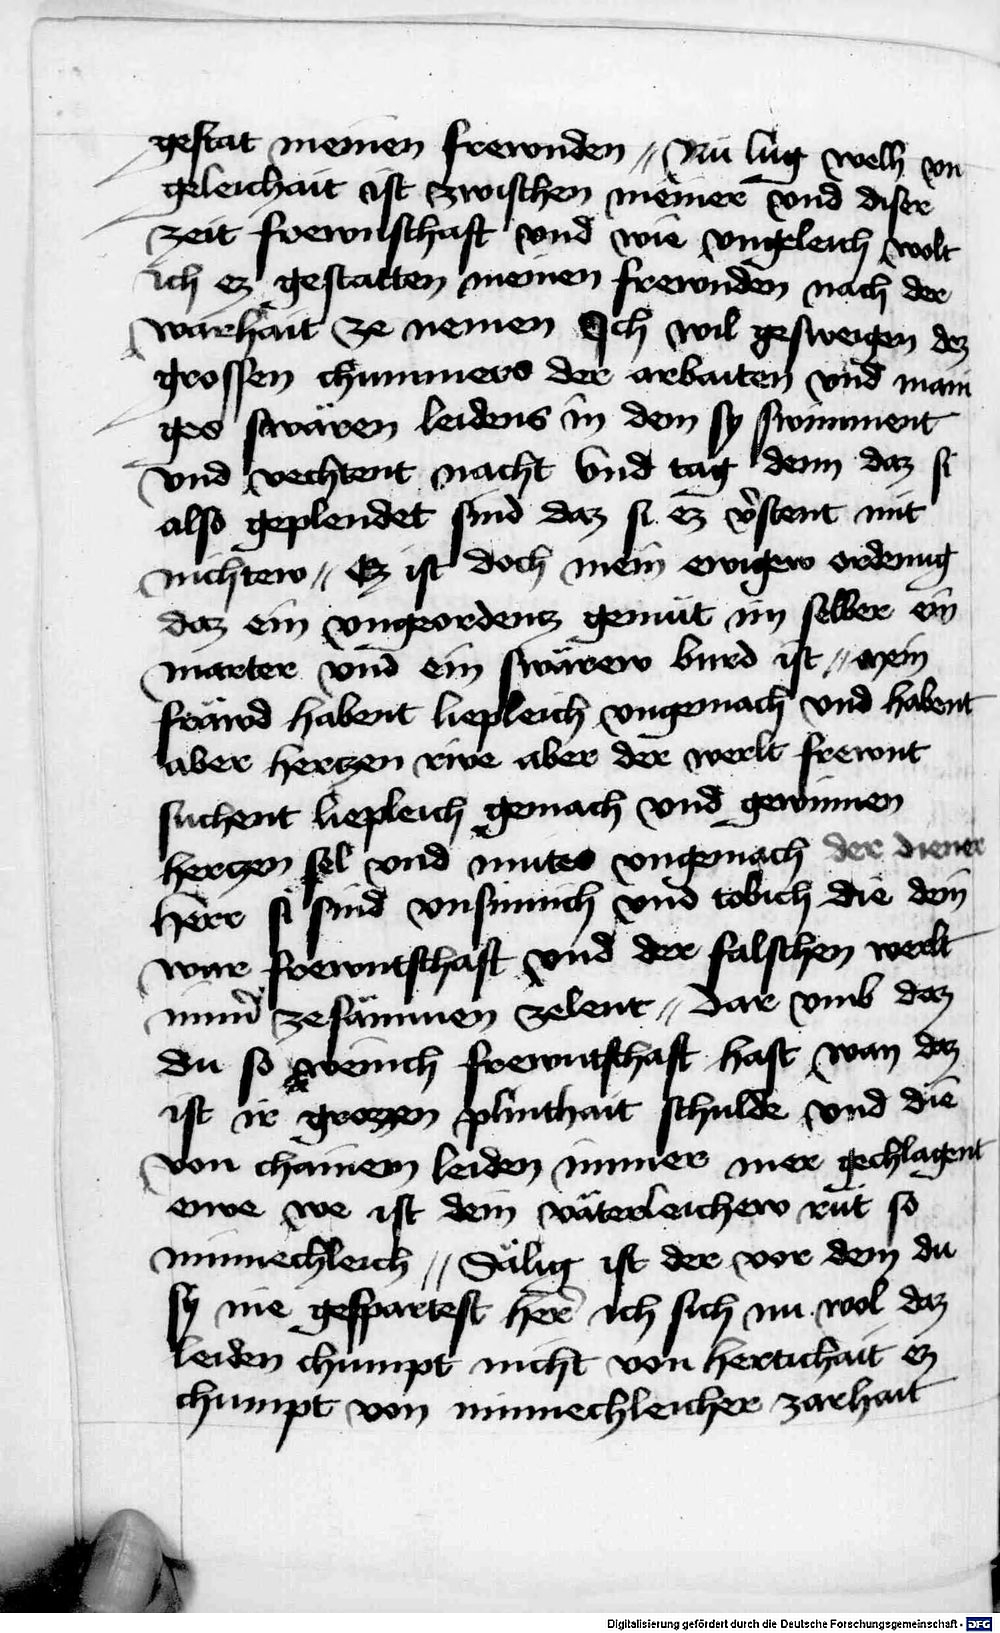 gestat meinen frewnden // Nu lug welh vn
geleichait ist zwischen meiner vnd diser
zeit frewnschaft vnd wie vngeleich wolt
ich ez gestatten meinen frewnden nach der
warhait ze nemen Ich wil gesweigen dez
grossen chummers der arbaiten vnd mani
ges swären leidens in dem sy swimment
vnd vechtent nacht vnd tag denn daz si
also geplendet sind daz si ez v̾stent mit
nichtew // Ez ist doch mein ewigew ordenug
daz ein vngeordentz gemüt im selber ein
marter vnd ein swärew burd ist // mein
fräwd habent liepleich vngemach vnd habent
aber hertzen rwe aber der werlt frewnt
suchent liepleich gemach vnd gewinnen
hertzen sel vnd mutes vngemach der diener
Herr si sind vnsinnich vnd tobich die dein
war frewntschaft vnd der falschen werlt
mim̾ zesämmen zelent // Dar vmb daz
du so wenich frewntschaft hast wan daz
ist ir grozzen plinthait schulde vnd die
von chainem leiden immer mer gechlagent
ewe we ist dein väterleichew rüt so
minnechleich // Sälig ist der vor dem du
sy nie gespartest herr ich sich nu wol daz
leiden chumpt nicht von hertichait ez
chumpt von minnechleicher zarhait
Digitalisierung gefördert durch die Deutsche Forschungsgemeinschaft - DFG